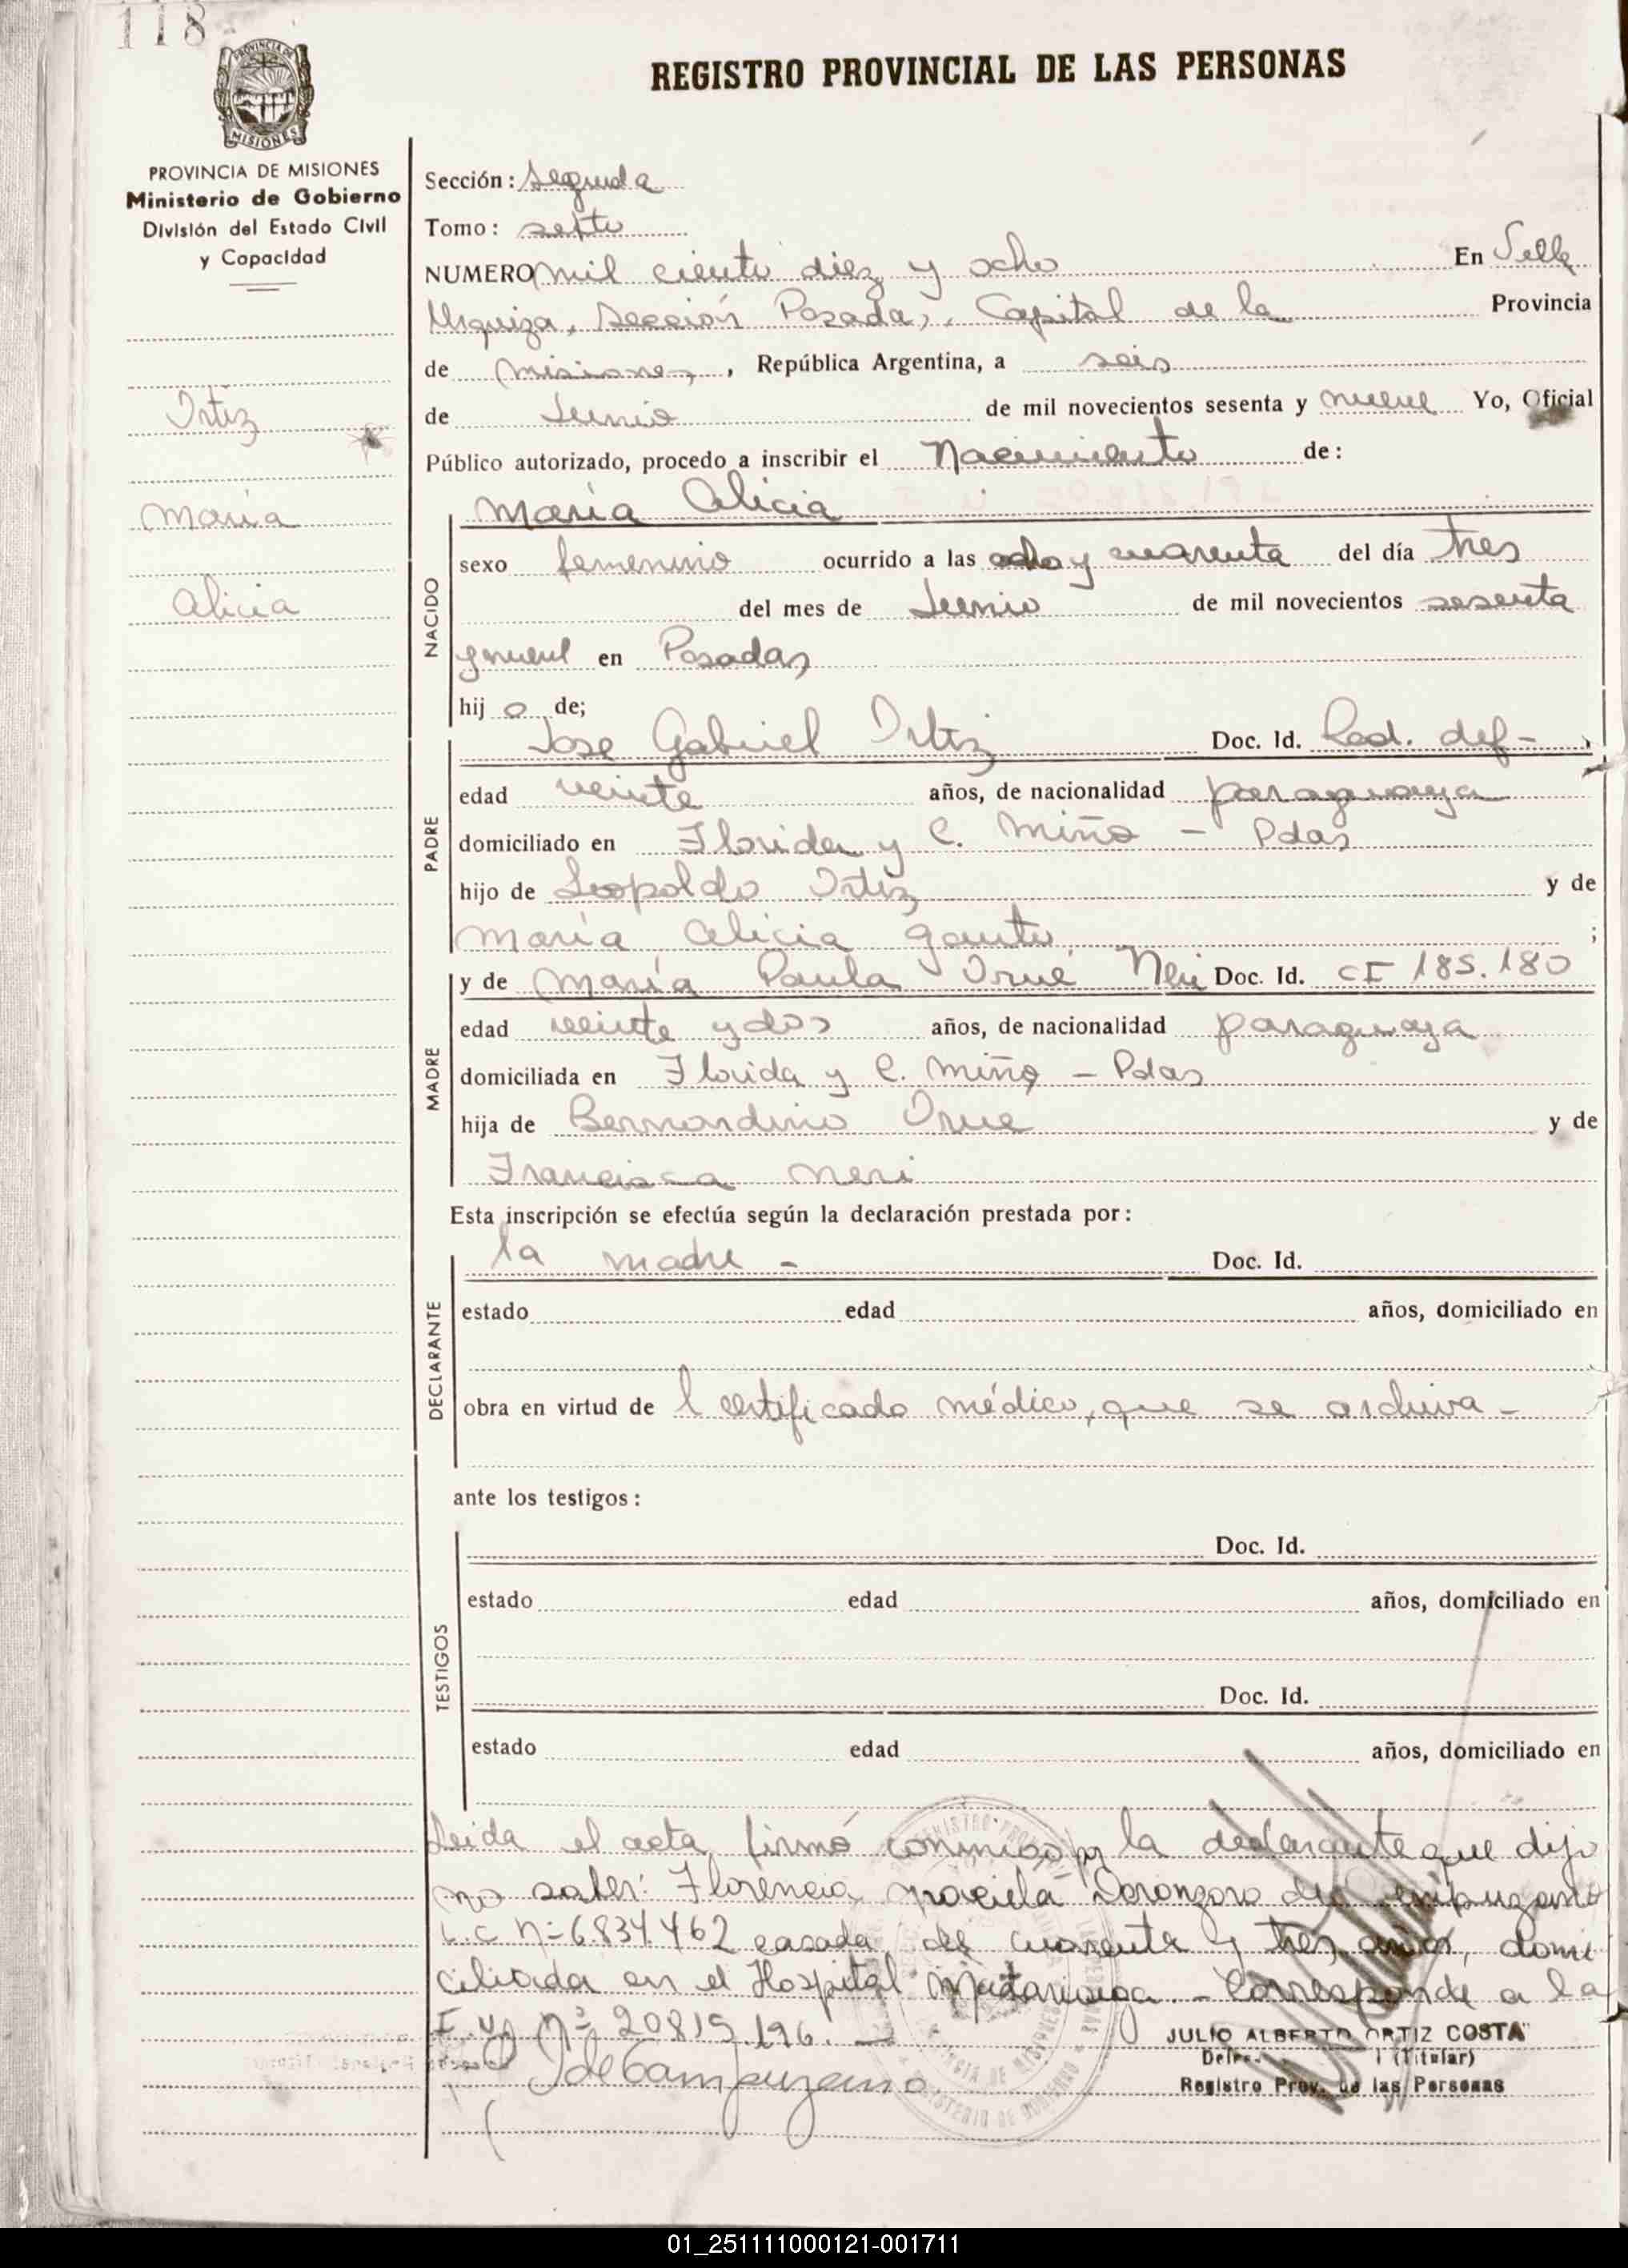 118
REGISTRO PROVINCIAL DE LAS PERSONAS
PROVINCIA DE MISIONES
MISIONES
PROVINCIA DE MISIONES
Ministerio de Gobierno
División del Estado Civil
y Capacidad
Ortiz
María
Alicia
Sección: Segunda
Tomo: sexto
NUMERO mil ciento diez y ocho En Villa
Urquiza, Sección Posadas, Capital de la Provincia
de Misiones, República Argentina, a seis
de Junio de mil novecientos sesenta y nueve Yo, Oficial
Público autorizado, procedo a inscribir el Nacimiento de:
NACIDO
María Alicia
sexo femenino ocurrido a las ocho y cuarenta del día tres
del mes de Junio de mil novecientos sesenta
y nueve en Posadas
hij a de;
PADRE
Jose Gabriel Ortiz Doc. Id. Ced. def-
edad veinte años, de nacionalidad paraguaya
domiciliado en Florida y C. Miño - Pdas
hijo de Leopoldo Ortiz y de
María Alicia Gauto ;
MADRE
y de María Paula Orué Neri Doc. Id. CI 185.180
edad veinte y dos años, de nacionalidad paraguaya
domiciliada en Florida y C. Miño - Pdas
hija de Bernardino Orue y de
Francisca Neri
Esta inscripción se efectúa según la declaración prestada por:
DECLARANTE
la madre - Doc. Id.
estado edad años, domiciliado en
obra en virtud de l certificado médico, que se archiva -
ante los testigos:
TESTIGOS
Doc. Id.
estado edad años, domiciliado en
Doc. Id.
estado edad años, domiciliado en
Leida el acta, firmó conmigo por la declarante que dijo
no saber: Florencia de
L.C nº 6.834.462 casada de cuarenta y tres años, domi
ciliada en el Hospital - Corresponde a la
nº 20819.196. -
JdeCampuzano
JULIO ALBERTO ORTIZ COSTA
(Titular)
Registro Prov. de las Personas
01_251111000121-001711